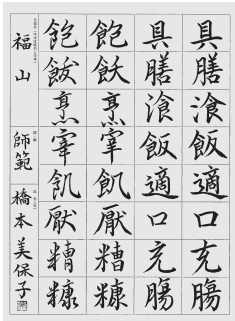 具膳湌飯適口充腸
具膳湌飯適口充腸
飽飫烹宰飢厭糟糠
飽飫烹宰飢厭糟糠
福山 師範 橋本美保子